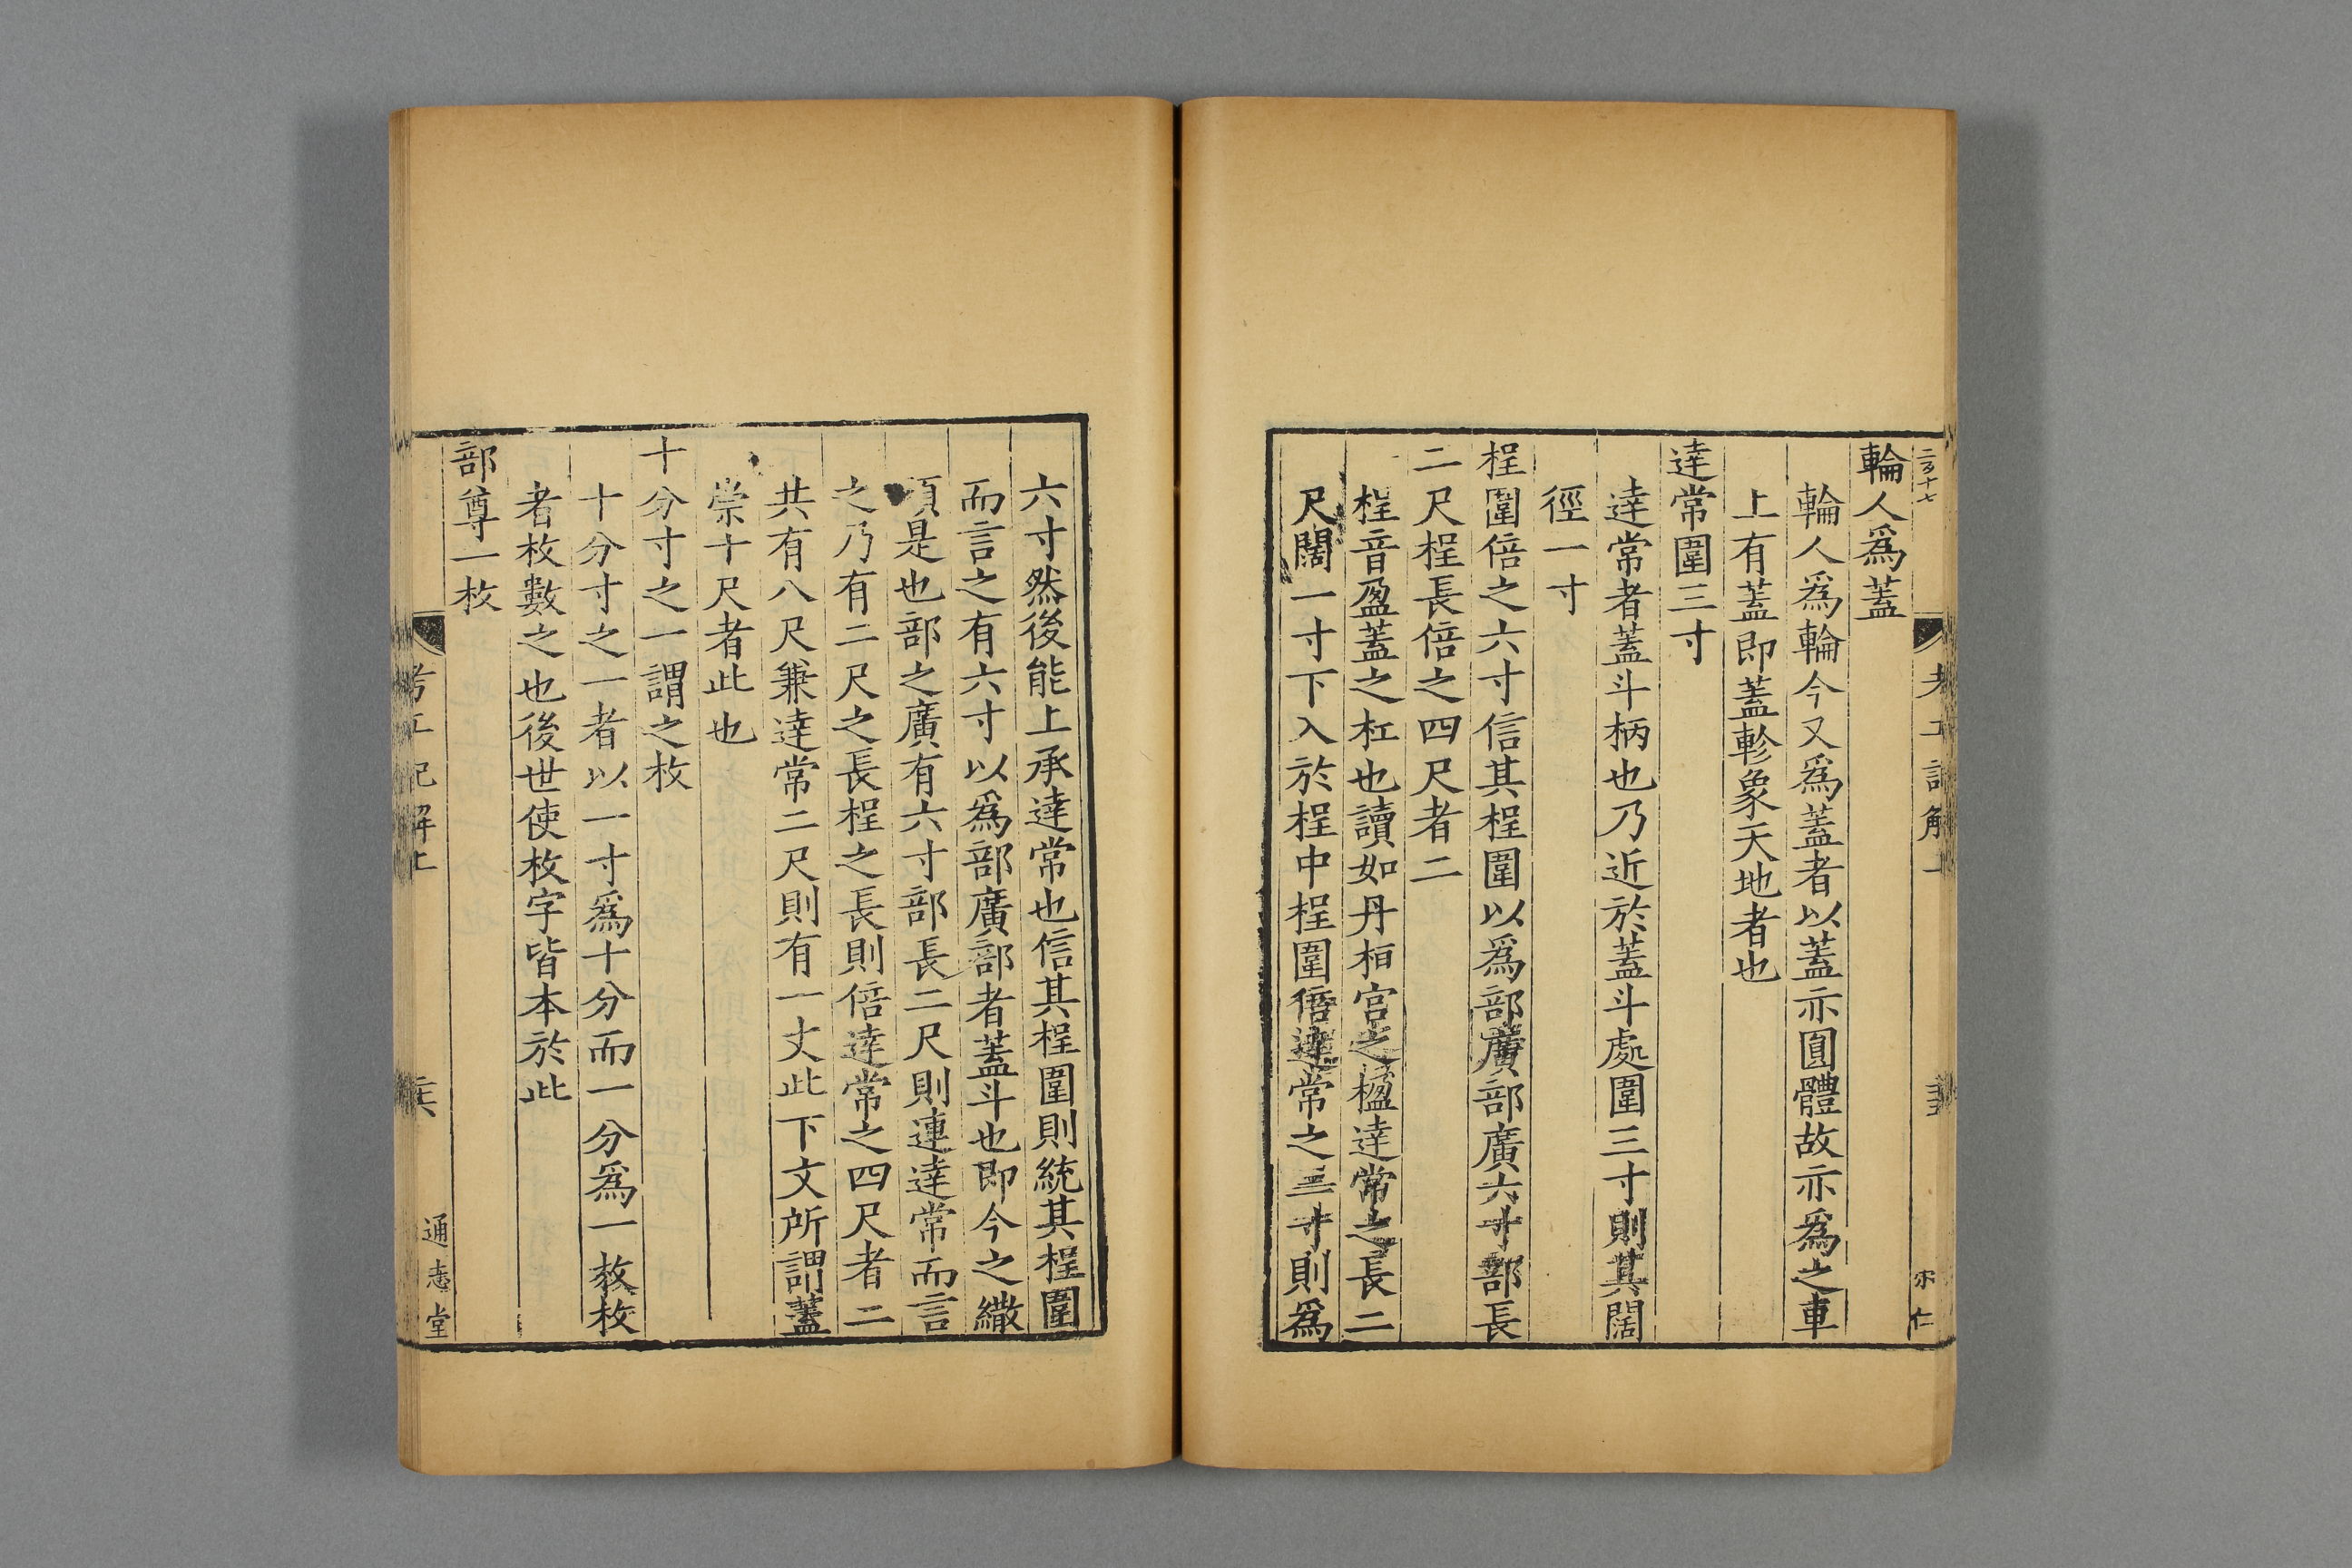 二百十七
考工記解上
宋仁
輪人爲蓋
輪人爲輪今又爲蓋者以蓋亦圓體故亦爲之車
上有蓋即蓋軫象天地者也
達常圍三寸
達常者蓋斗柄也乃近於蓋斗處圍三寸則其闊
徑一寸
桯圍倍之六寸信其桯圍以爲部廣部廣六寸部長
二尺桯長倍之四尺者二
桯音盈蓋之杠也讀如丹桓宮之楹達常之長二
尺闊一寸下入於桯中桯圍倍達常之三寸則爲
六寸然後能上承達常也信其桯圍則統其桯圍
而言之有六寸以爲部廣部者蓋斗也即今之繖
頂是也部之廣有六寸部長二尺則連達常而言
之乃有二尺之長桯之長則倍達常之四尺者二
共有八尺兼達常二尺則有一丈此下文所謂蓋
崇十尺者此也
十分寸之一謂之枚
十分寸之一者以一寸爲十分而一分爲一枚枚
者枚數之也後世使枚字皆本於此
部尊一枚
考工記解上
通志堂